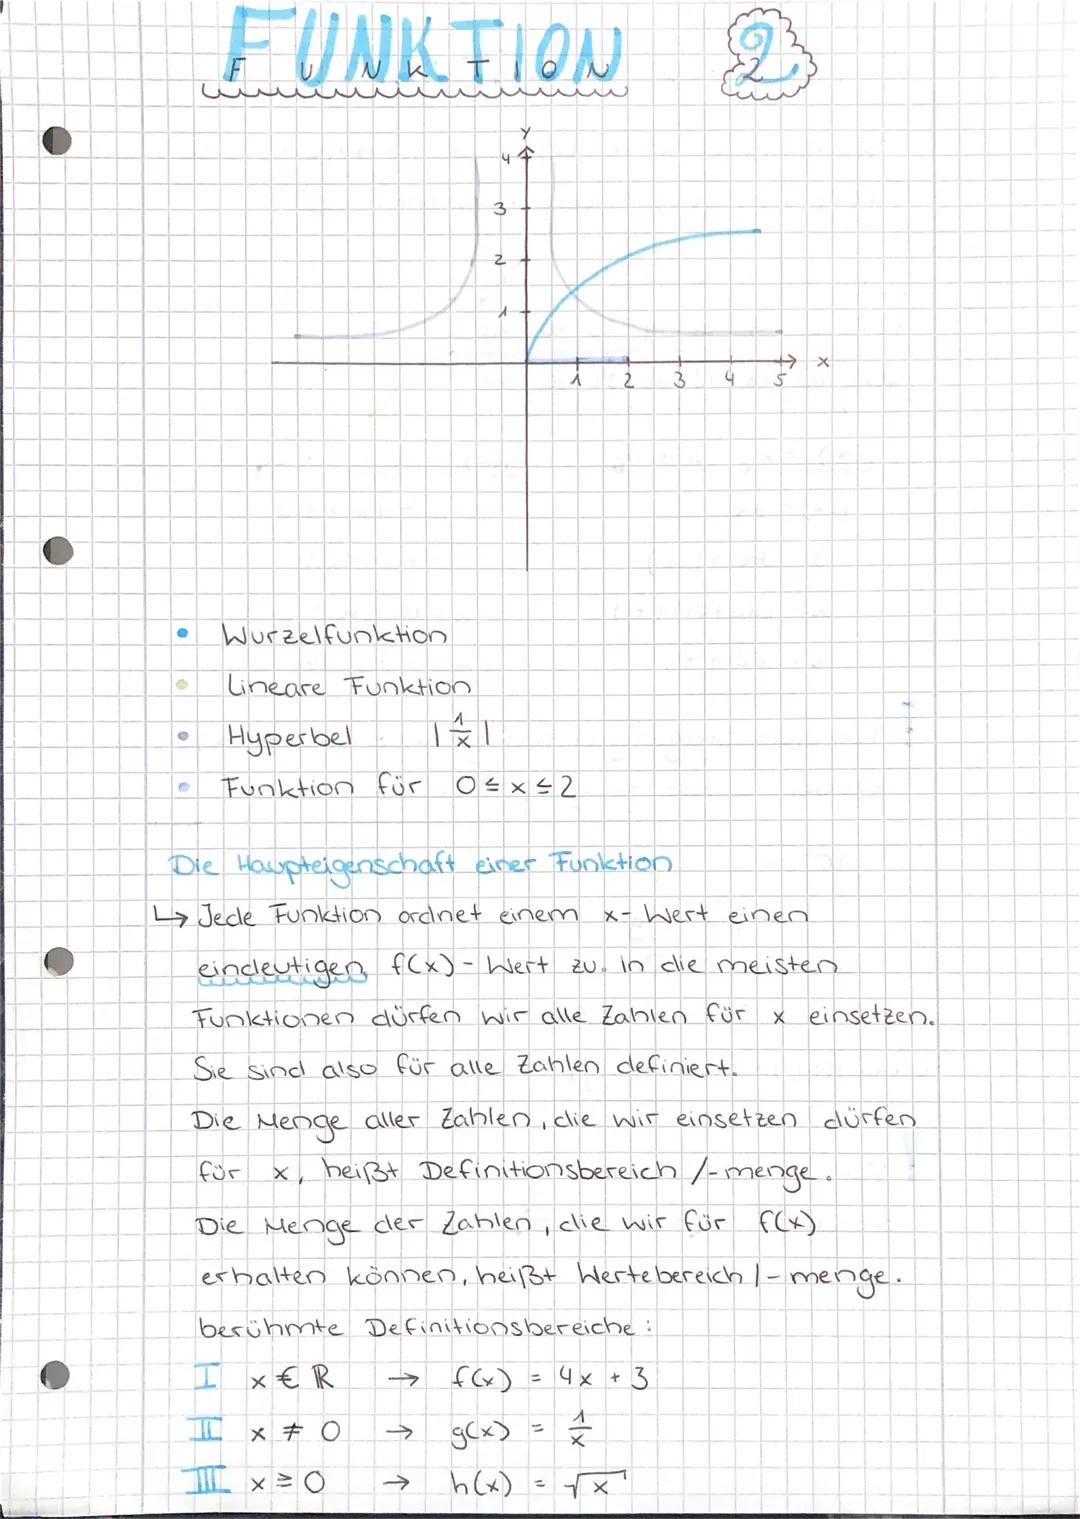 FUNKTION 2
FUNKTION 2
y
4
3
2
1
1 2 3 4 5 x
• Wurzelfunktion
• Lineare Funktion
• Hyperbel |1/x|
• Funktion für 0 ≤ x ≤ 2
Die Haupteigenschaft einer Funktion
↳ Jede Funktion ordnet einem x-Wert einen
eindeutigen f(x)-Wert zu. In die meisten
Funktionen dürfen wir alle Zahlen für x einsetzen.
Sie sind also für alle Zahlen definiert.
Die Menge aller Zahlen, die wir einsetzen dürfen
für x, heißt Definitionsbereich /-menge.
Die Menge der Zahlen, die wir für f(x)
erhalten können, heißt Wertebereich /-menge.
berühmte Definitionsbereiche:
I x € ℝ → f(x) = 4x + 3
II x ≠ 0 → g(x) = 1/x
III x ≥ 0 → h(x) = √x